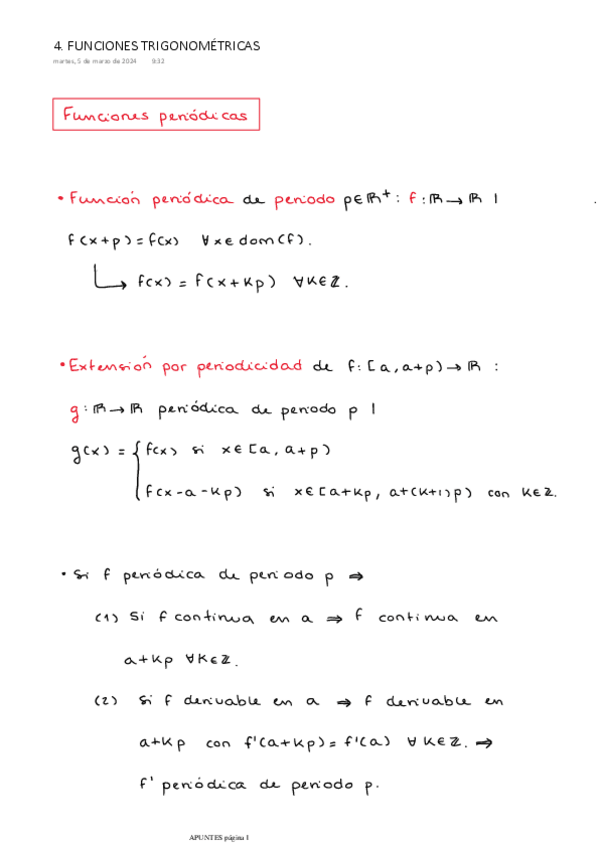 4. FUNCIONES TRIGONOMÉTRICAS
martes, 5 de marzo de 2024 9:32
Funciones periódicas
• Función periódica de periodo p∈ℝ⁺ : f : ℝ → ℝ |
f(x+p) = f(x) ∀x∈dom(f).
↳ f(x) = f(x+kp) ∀k∈ℤ.
• Extensión por periodicidad de f: [a, a+p) → ℝ :
g : ℝ → ℝ periódica de periodo p |
g(x) = { f(x) si x∈[a, a+p)
f(x-a-kp) si x∈[a+kp, a+(k+1)p) con k∈ℤ.
• Si f periódica de periodo p ⇒
(1) Si f continua en a ⇒ f continua en
a+kp ∀k∈ℤ.
(2) Si f derivable en a ⇒ f derivable en
a+kp con f'(a+kp) = f'(a) ∀k∈ℤ. ⇒
f' periódica de periodo p.
APUNTES página 1